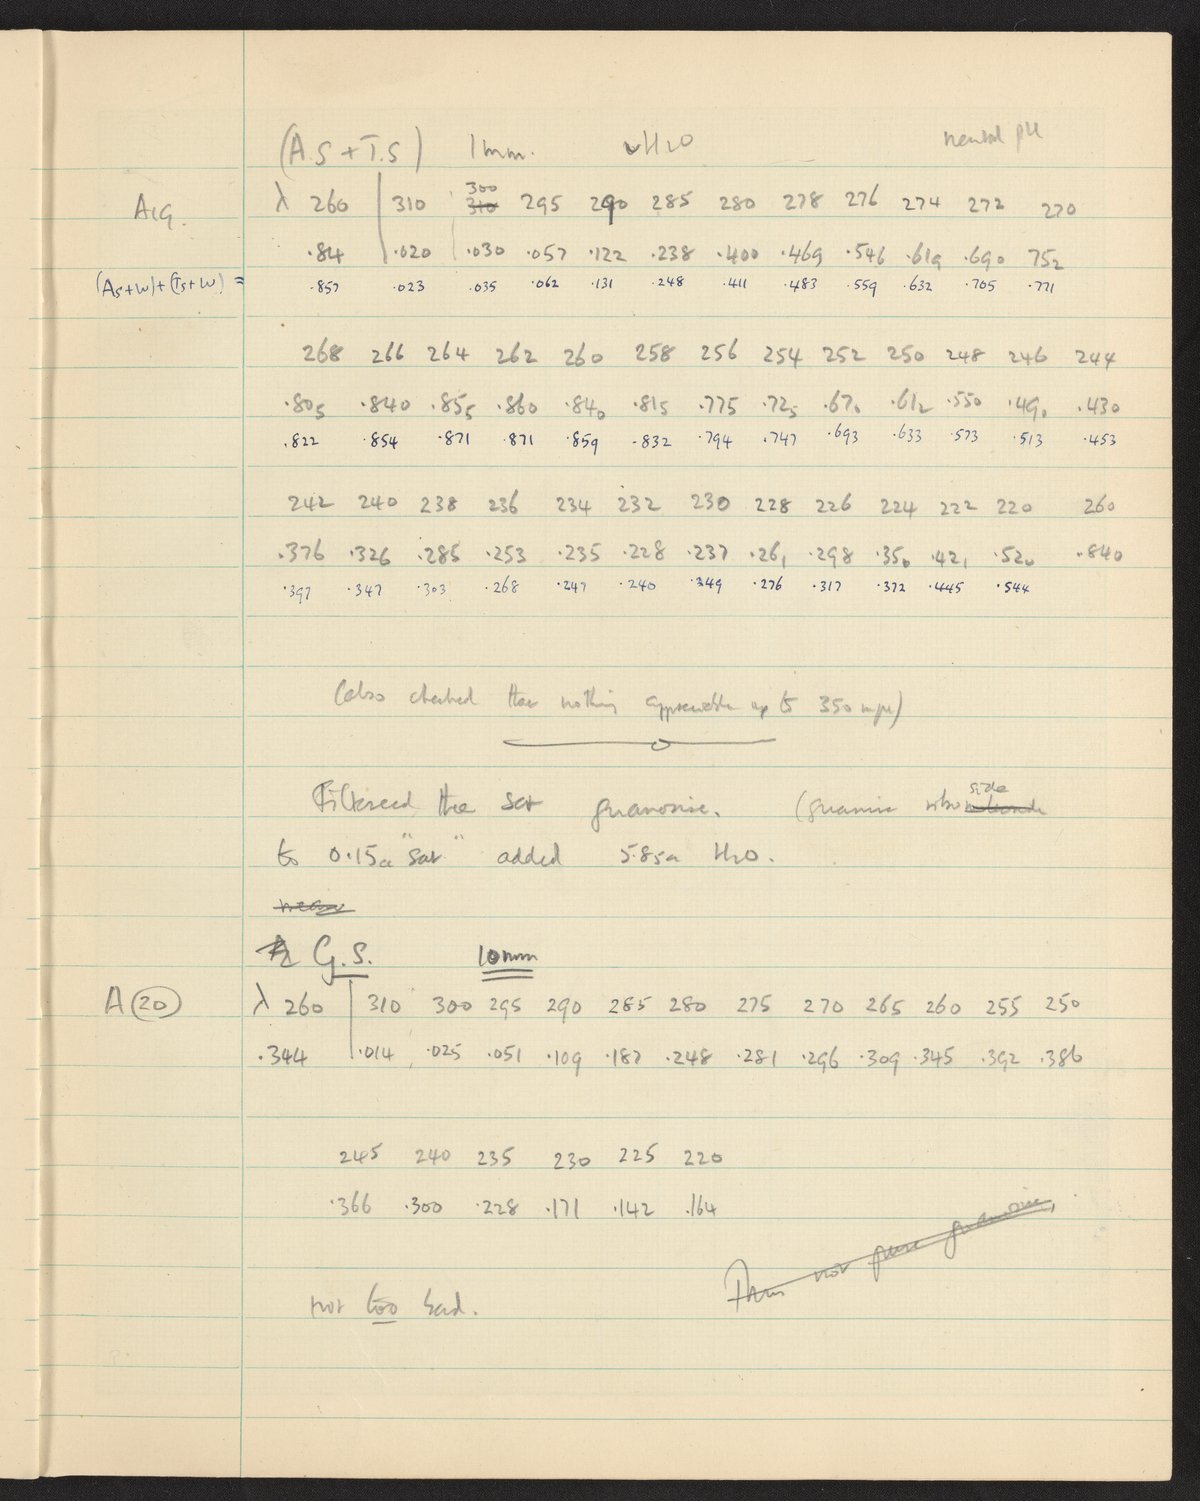 (A.S + T.S) 1mm. H2O neutral pH
A19. λ 260 310 300 295 290 285 280 278 276 274 272 270
.84 .020 .030 .057 .122 .238 .400 .469 .546 .619 .690 752
(As+W)+(Ts+W) = .857 .023 .035 .062 .131 .248 .411 .483 .559 .632 .705 .771
268 266 264 262 260 258 256 254 252 250 248 246 244
.805 .840 .855 .860 .840 .815 .775 .725 .670 .612 .550 .490 .430
.822 .854 .871 .871 .859 .832 .794 .747 .693 .633 .573 .513 .453
242 240 238 236 234 232 230 228 226 224 222 220 260
.376 .326 .285 .253 .235 .228 .237 .261 .298 .350 .421 .520 .840
.397 .347 .303 .268 .247 .240 .349 .276 .317 .372 .445 .544
(also checked that nothing appreciable up to 350 mμ)
Filtered the sat guanosine. (guanine riboside
to 0.15cc "sat" added 5.85cc H2O.
G.S. 10mm
A(20) λ 260 310 300 295 290 285 280 275 270 265 260 255 250
.344 .014 .025 .051 .109 .187 .248 .281 .296 .309 .345 .392 .386
245 240 235 230 225 220
.366 .300 .228 .171 .142 .164
Thus not pure guanosine,
not too bad.